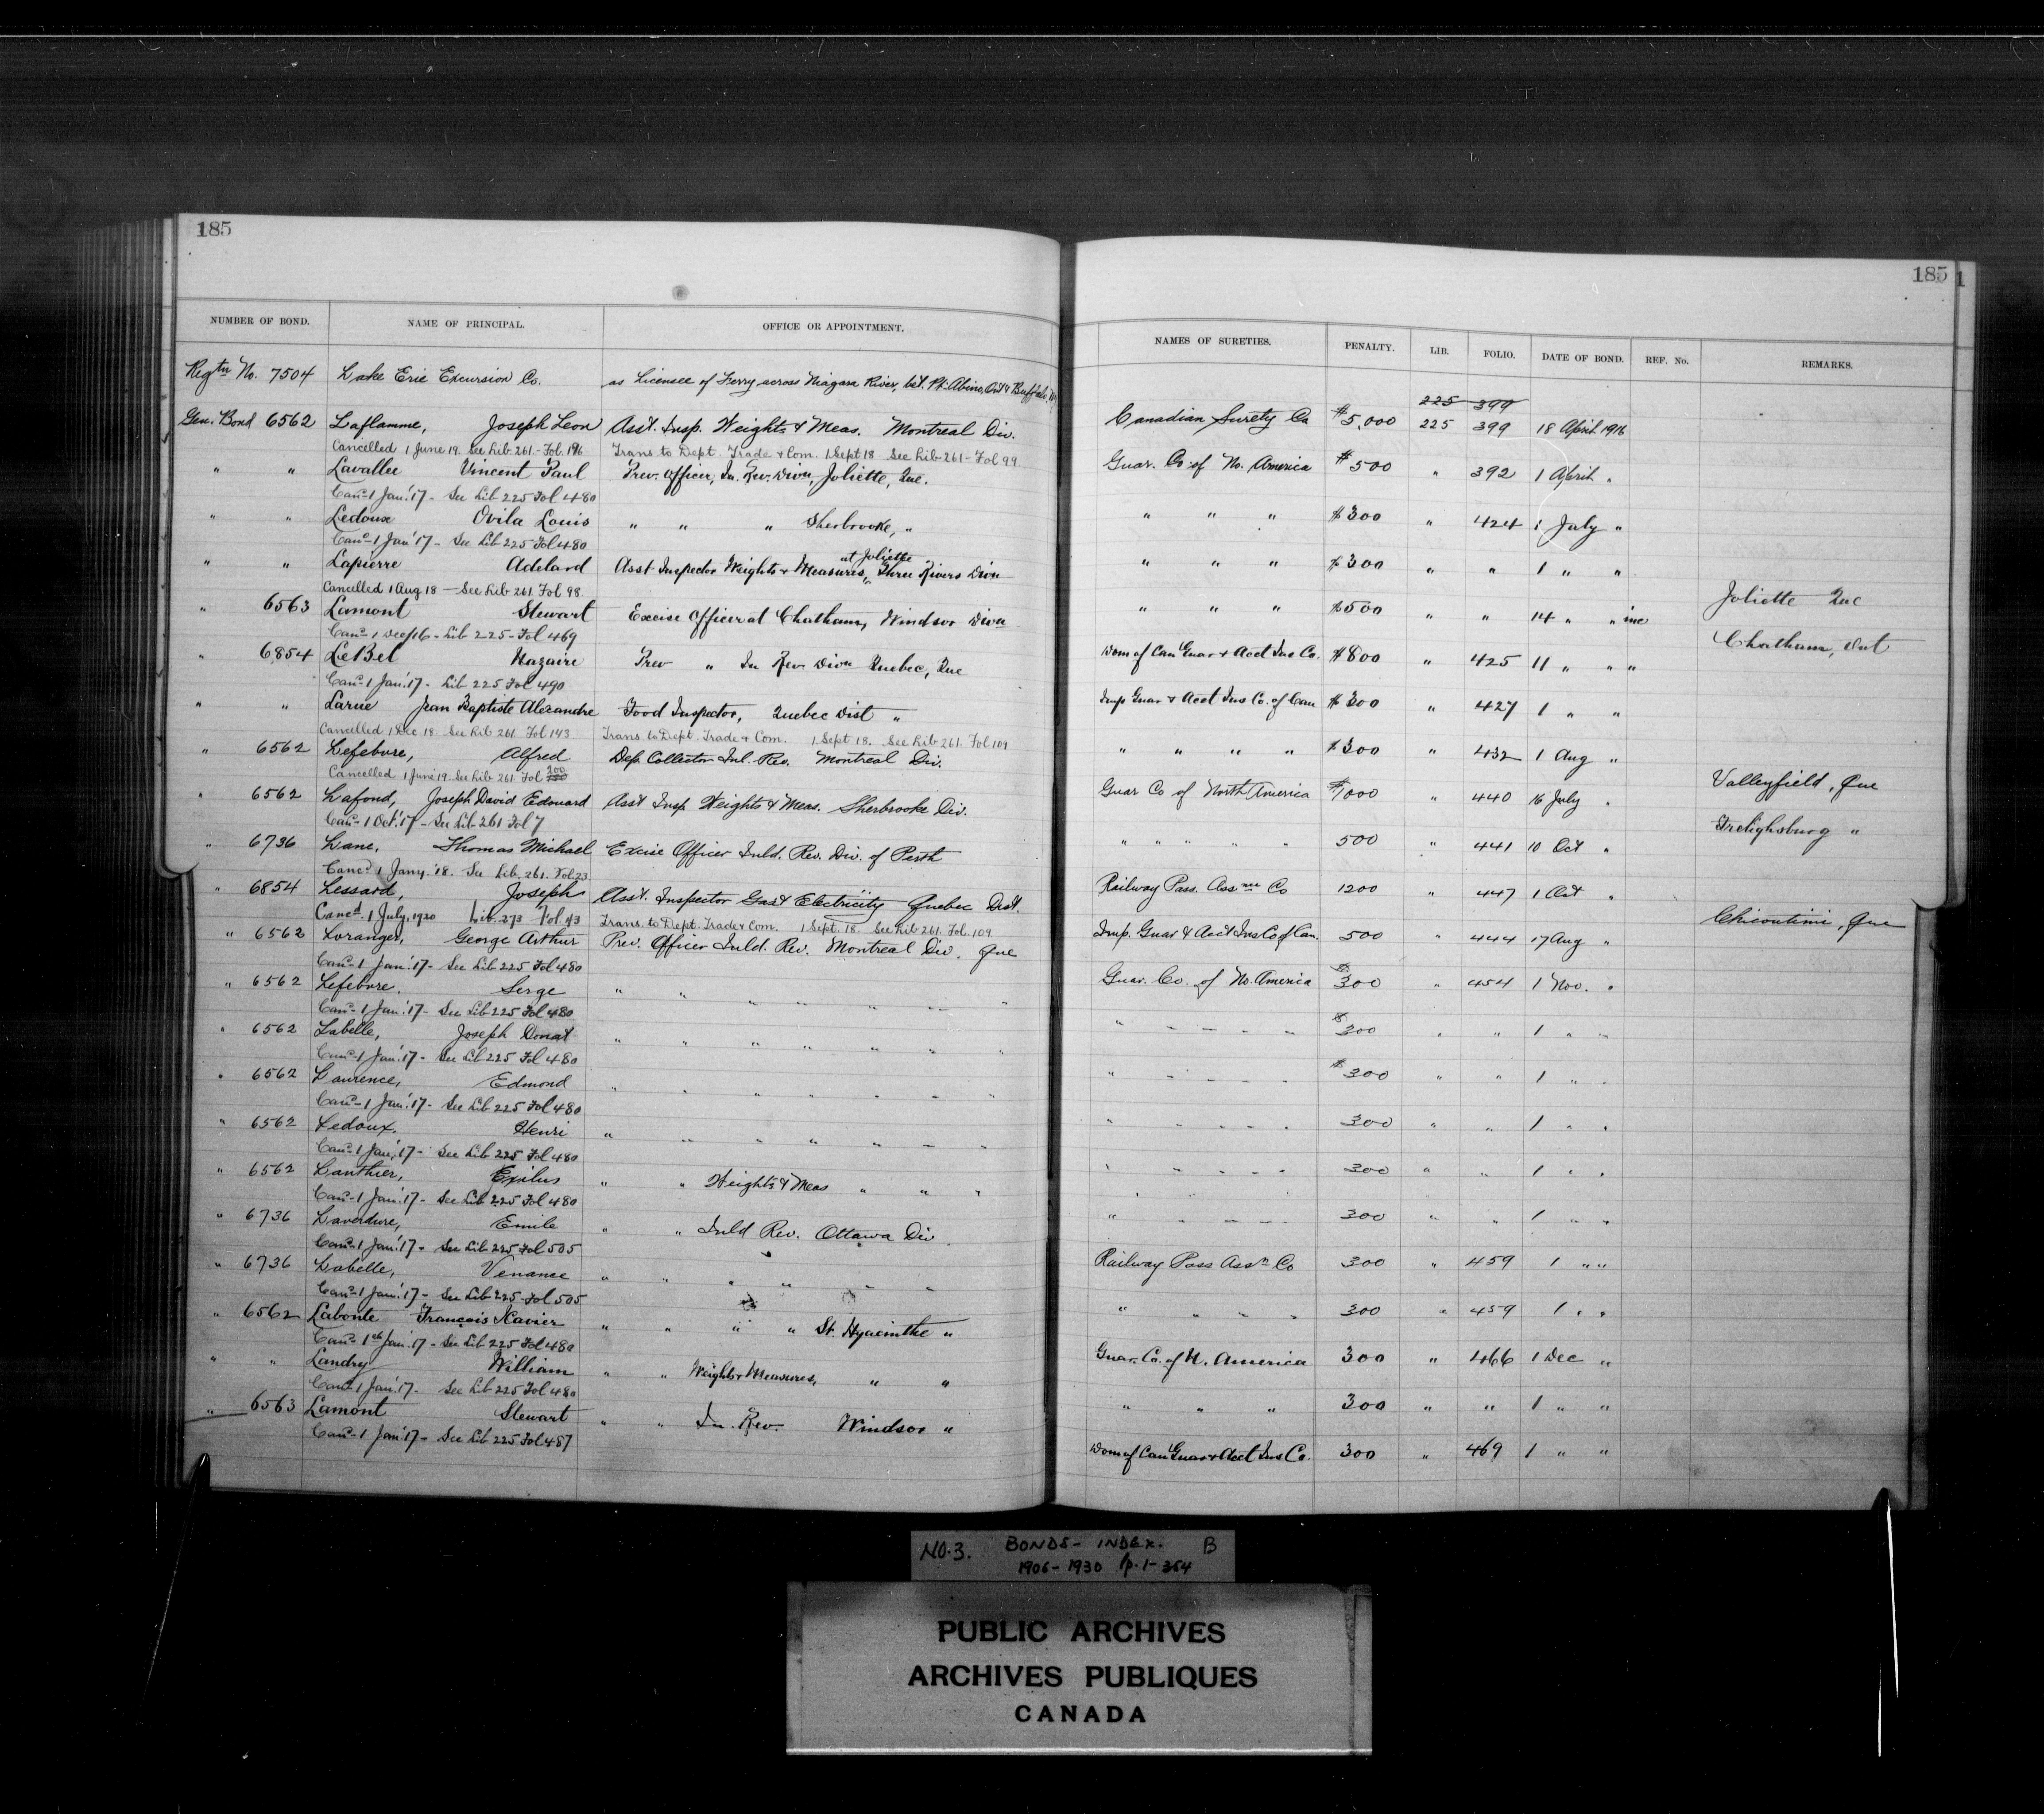 185
NUMBER OF BOND. NAME OF PRINCIPAL. OFFICE OR APPOINTMENT.
Regtn No. 7504 Lake Erie Excursion Co. as Licensee of Ferry across Niagara River, bet. Pt. Abino, Ont & Buffalo, N.Y.
Gen. Bond 6562 Laflamme, Joseph Leon Asst. Insp. Weights & Meas. Montreal Div.
Cancelled 1 June 19. See Lib 261 - Fol. 196 Trans to Dept. Trade & Com. 1 Sept 18 See Lib 261 - Fol 99
" " Lavallee Vincent Paul Prev. Officer, In. Rev. Divn, Joliette, Que.
Cancd 1 Jan'. 17 - See Lib 225 Fol 480
" " Ledoux Ovila Louis " " " Sherbrooke, "
Cancd 1 Jan' 17 - See Lib 225 Fol 480
" " Lapierre Adelard Asst Inspector Weights & Measures, at Joliette Three Rivers Divn
Cancelled 1 Aug 18 - See Lib 261 Fol 98
" 6563 Lamont Stewart Excise Officer at Chatham, Windsor Divn
Cancd 1 Dec/16 - Lib 225 - Fol 469
" 6854 LeBel Nazaire Prev " In Rev Divn Quebec, Que
Cancd 1 Jan'. 17 - Lib 225 Fol 490
" " Larue Jean Baptiste Alexandre Food Inspector, Quebec Dist "
Cancelled 1 Dec 18 See Lib 261 Fol 143 Trans. to Dept. Trade & Com. 1 Sept 18. See Lib 261. Fol 109
" 6562 Lefebvre, Alfred Dep. Collector Inl. Rev. Montreal Div.
Cancelled 1 June 19. See Lib 261. Fol 200
" 6562 Lafond, Joseph David Edouard Asst Insp Weights & Meas. Sherbrooke Div.
Cancd - 1 Oct'. 17 - See Lib 261 Fol 7
" 6736 Lane, Thomas Michael Excise Officer Inld. Rev. Div. of Perth
Cancd 1 Jany. '18. See Lib. 261. Fol. 23
" 6854 Lessard, Joseph Asst. Inspector Gas & Electricity Quebec Dist.
Cancd. 1 July, 1920 Lib. 273 Fol. 43 Trans. to Dept. Trade & Com. 1 Sept. 18. See Lib 261. Fol. 109
" 6562 Loranger, George Arthur Prev. Officer Inld. Rev. Montreal Div. Que
Cancd 1 Jan'. 17 - See Lib 225 Fol 480
" 6562 Lefebvre. Serge " " " " " " "
Cancd 1 Jan'. 17 - See Lib 225 Fol 480
" 6562 Labelle, Joseph Donat " " " " " " "
Cancd 1 Jan'. 17 - See Lib 225 Fol 480
" 6562 Laurence, Edmond " " " " " " "
Cancd 1 Jan'. 17 - See Lib 225 Fol 480
" 6562 Ledoux. Henri " " " " " " "
Cancd 1 Jan'. 17 - See Lib 225 Fol 480
" 6562 Lanthier, " " Weights & Meas " " "
Cancd 1 Jan'. 17 - See Lib 225 Fol 480
" 6736 Laverdure, Emile " " Inld Rev. Ottawa Div
Cancd 1 Jan'. 17 - See Lib 225 Fol 505
" 6736 Labelle, Venance " " " " " "
Cancd 1 Jan'. 17 - See Lib 225 - Fol 505
" 6562 Labonte Francois Xavier " " " " St. Hyacinthe "
Cancd 1st Jan' 17 - See Lib 225 Fol 480
" " Landry William " " Weights & Measures, " "
Cancd 1 Jan'. 17. See Lib 225 Fol 480
" 6563 Lamont Stewart " " In. Rev. Windsor "
Cancd 1 Jan'. 17 - See Lib 225 Fol 487
185
NAMES OF SURETIES. PENALTY. LIB. FOLIO. DATE OF BOND. REF. No. REMARKS.
225 399
Canadian Surety Co $5,000 225 399 18 April 1916
Guar. Co of No. America $500 " 392 1 April "
" " " $300 " 424 1 July "
" " " $300 " " 1 " "
Joliette Que
" " " $500 " " 14 " " inc
Chatham, Ont
Dom of Can Guar & Acct Ins Co. $800 " 425 11 " " "
Imp Guar & Acct Ins Co. of Can $300 " 427 1 " "
" " " " $300 " 432 1 Aug "
Valleyfield, Que
Guar Co of North America $1000 " 440 16 July "
Frelighsburg "
" " " " " 500 " 441 10 Oct "
Railway Pass. Assnce Co 1200 " 447 1 Oct "
Chicoutimi, Que
Imp. Guar & Acct Ins Co of Can. 500 " 444 17 Aug "
Guar. Co. of No. America $300 " 454 1 Nov. "
" " " " " $300 " " 1 " "
" " " " " $300 " " 1 " "
" " " " " 300 " " 1 " "
" " " " " 300 " " 1 " "
" " " " " 300 " " 1 " "
Railway Pass Assn Co 300 " 459 1 " "
" " " " 300 " 459 1 " "
Guar. Co. of N. America 300 " 466 1 Dec "
" " " 300 " " 1 " "
Dom of Can Guar & Acct Ins Co. 300 " 469 1 " "
NO. 3. BONDS - INDEX. B
1906 - 1930 p. 1 - 354
PUBLIC ARCHIVES
ARCHIVES PUBLIQUES
CANADA